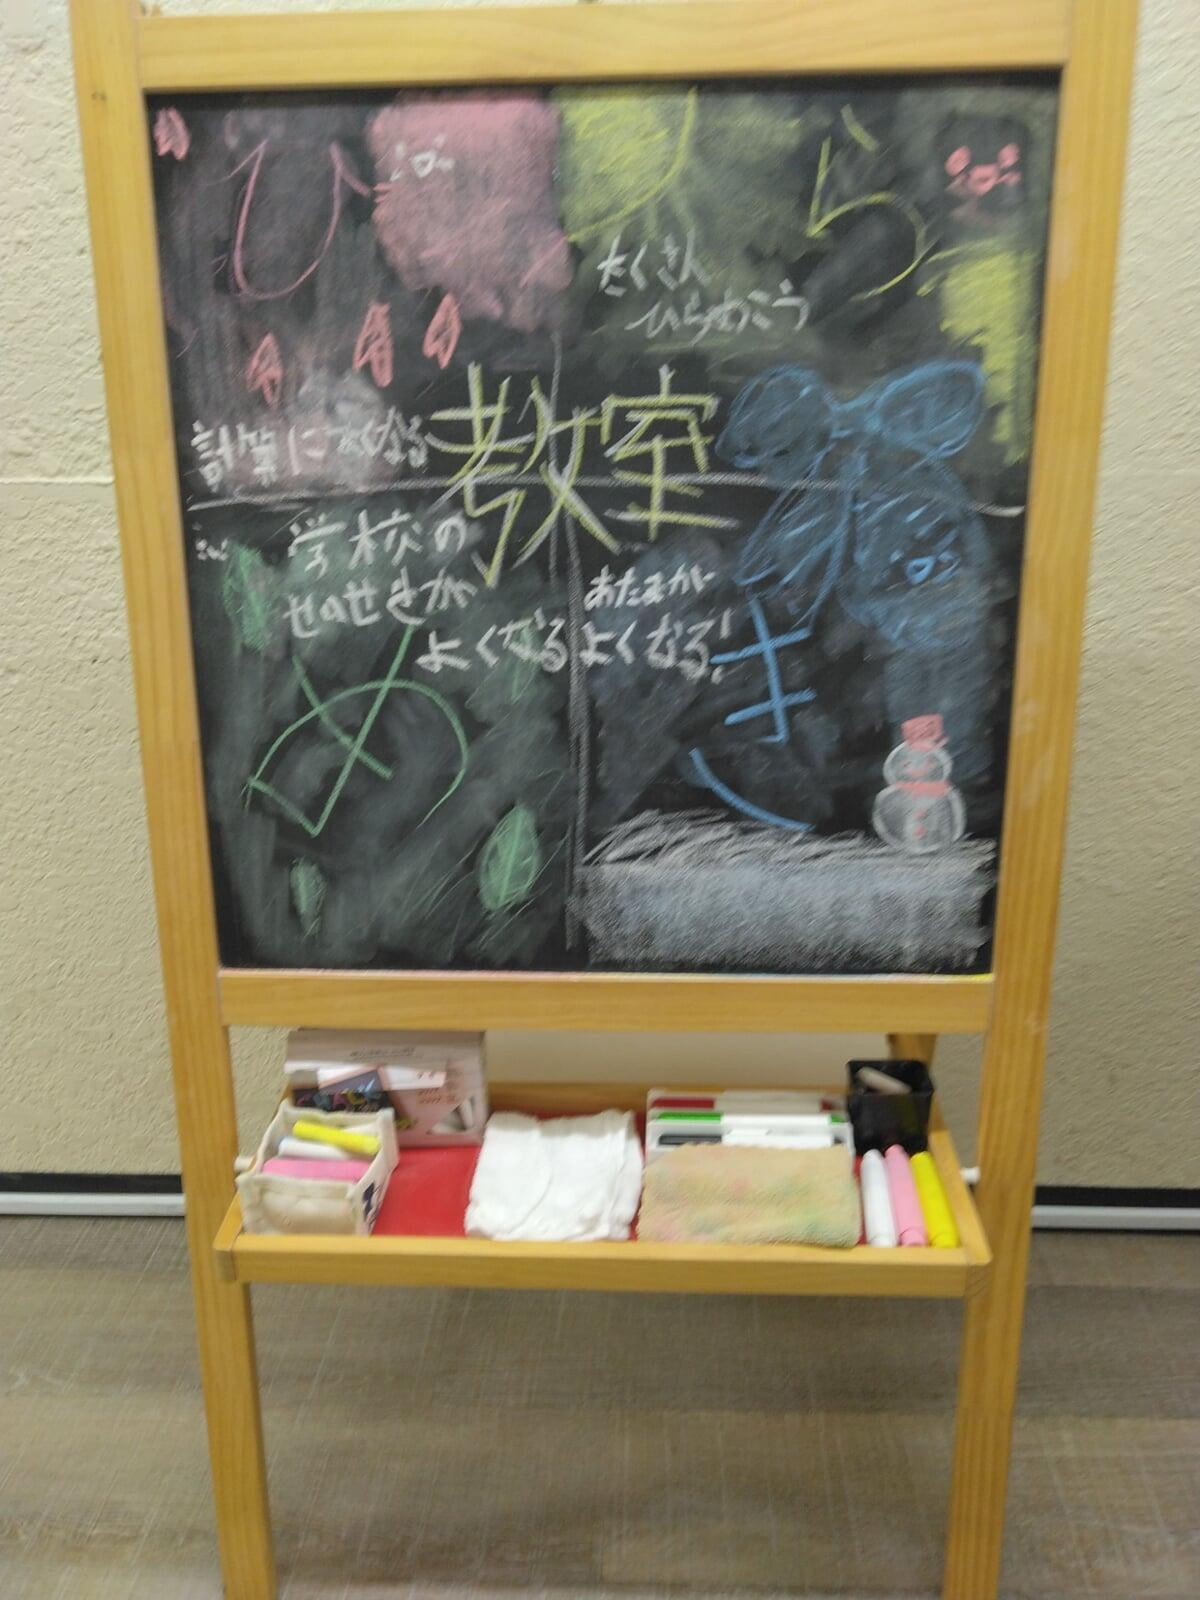 ひ
ら
たくさん
ひらめこう
教室
計算に
なる
学校の
せいせきが
よくなる
あたまが
よくなる!
め
き